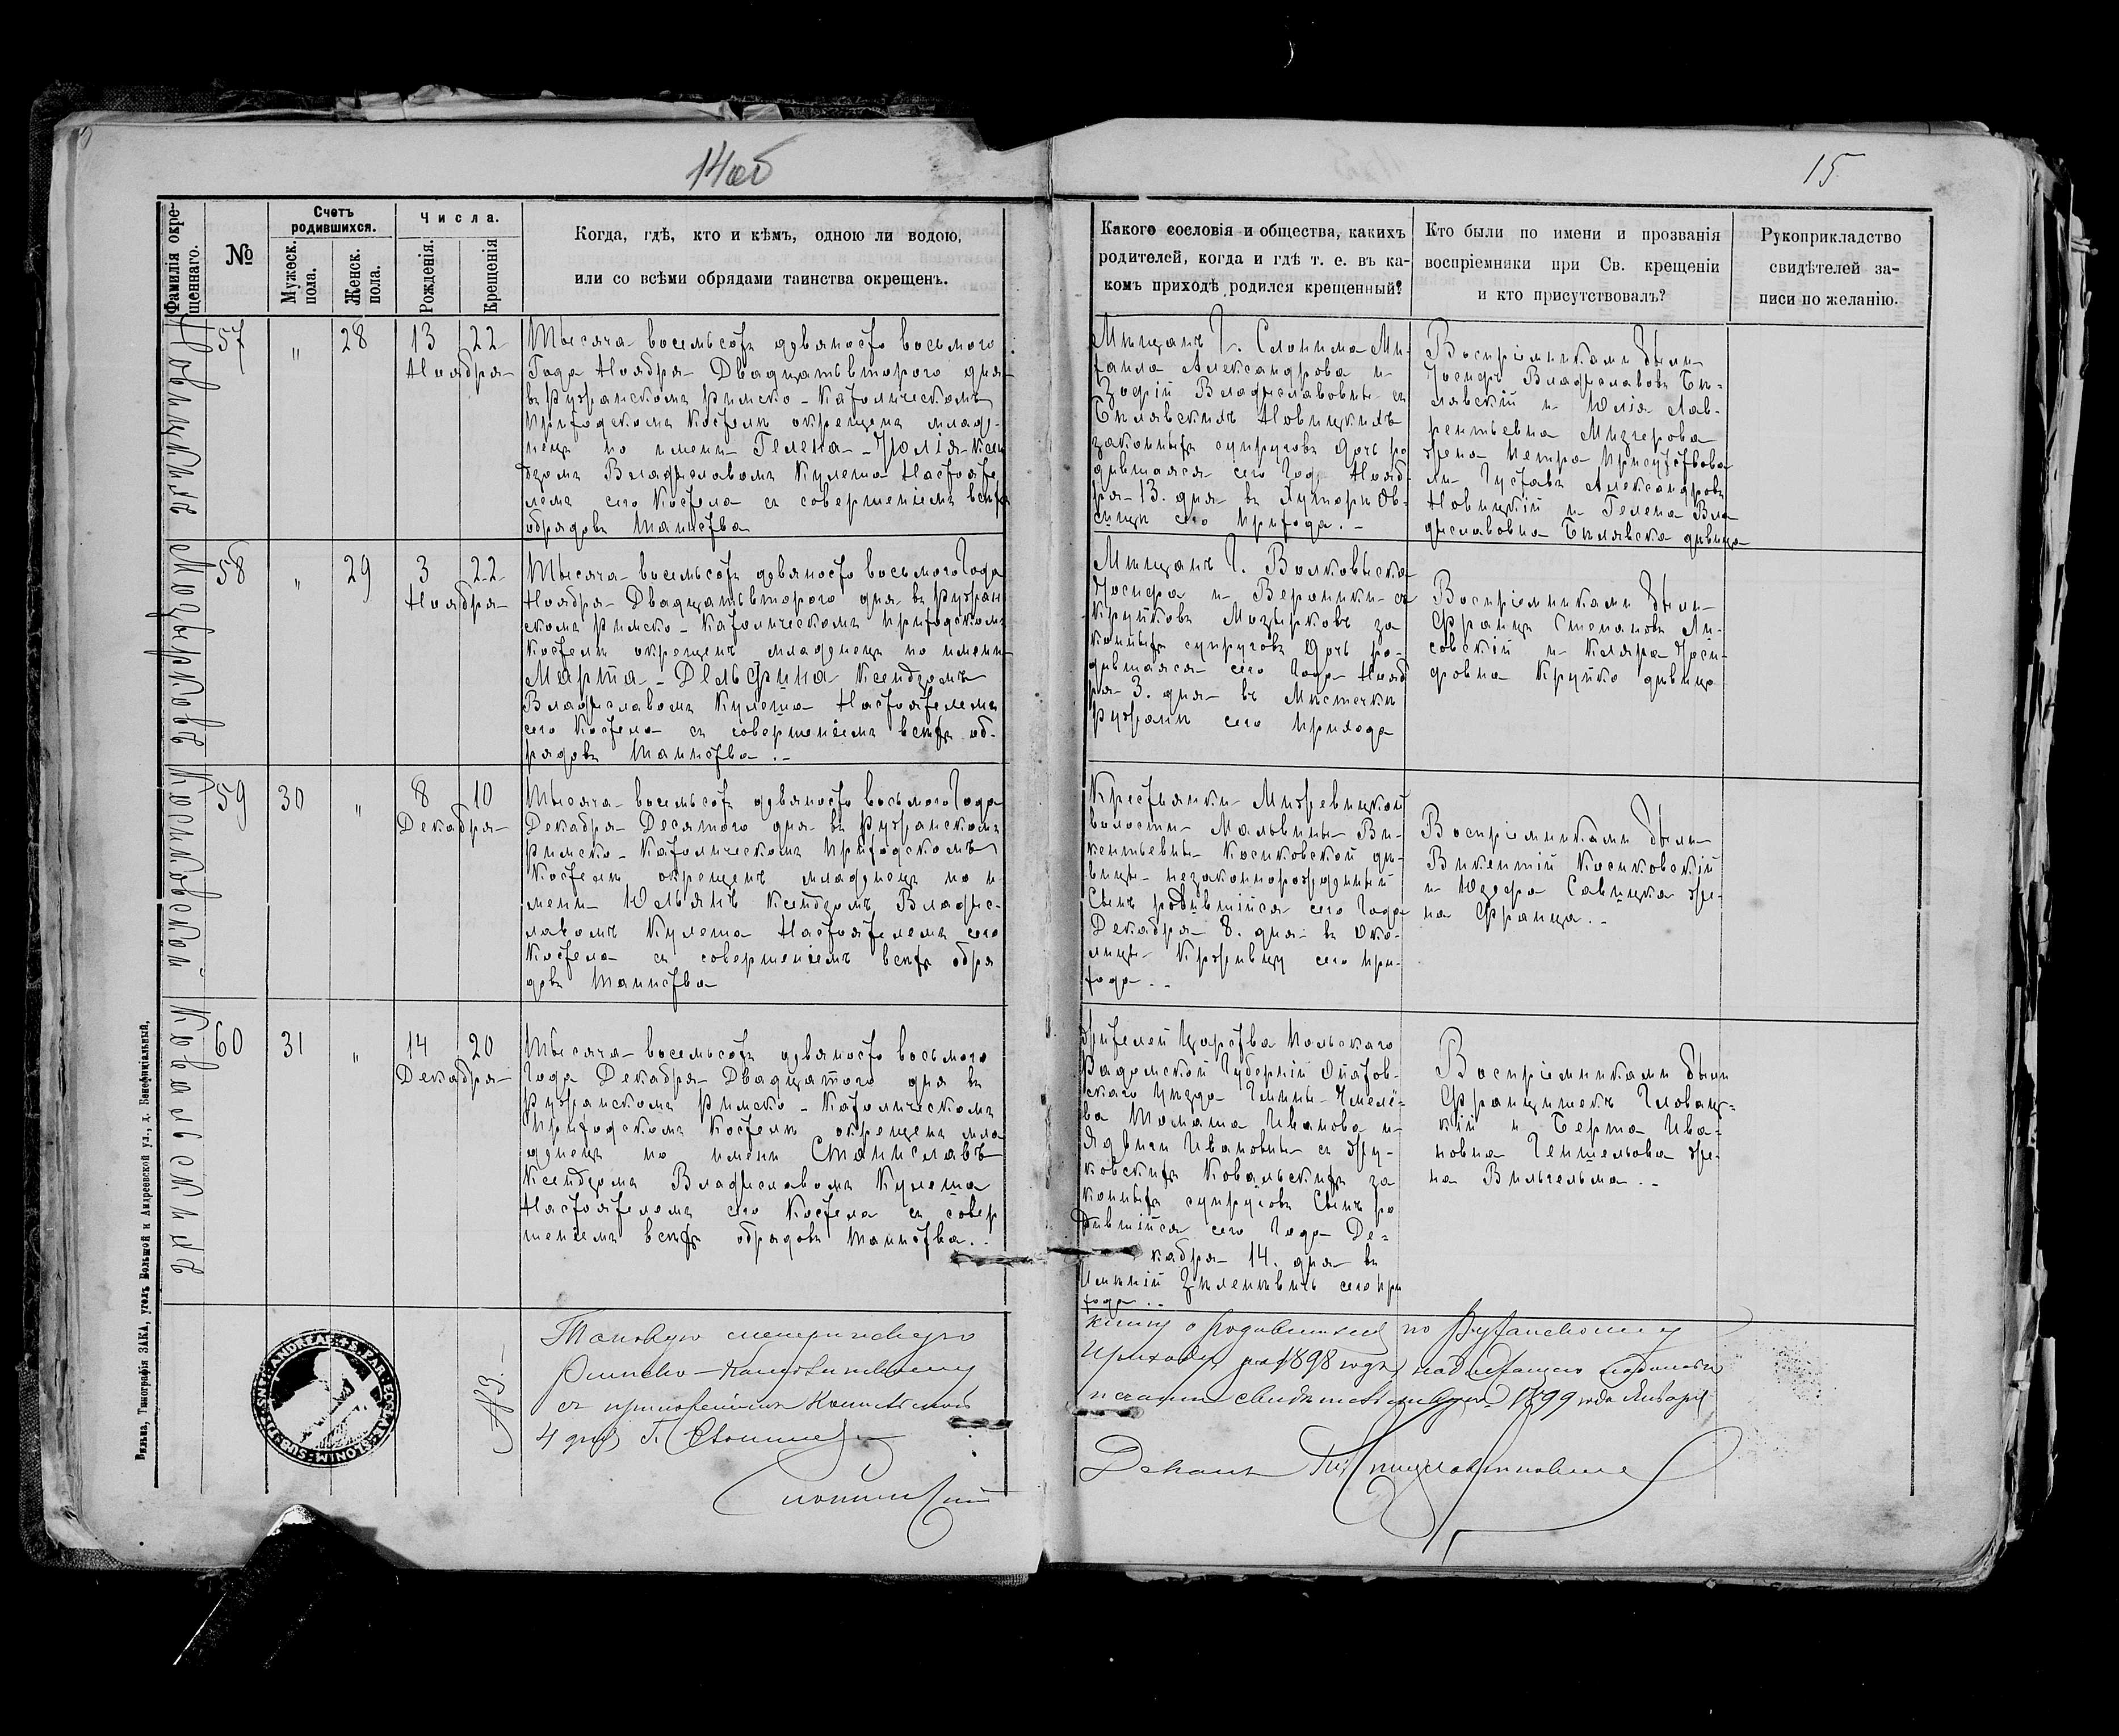 14об
15
Фамилія окре-
щеннаго.
№
Счетъ
родившихся.
Мужеск.
пола.
Женск.
пола.
Числа.
Рожденія.
Крещенія
Когда, гдѣ, кто и кѣмъ, одною ли водою,
или со всѣми обрядами таинства окрещенъ.
Какого сословія и общества, какихъ
родителей, когда и гдѣ т. е. въ ка-
комъ приходѣ родился крещенный?
Кто были по имени и прозванія
воспріемники при Св. крещеніи
и кто присутствовалъ?
Рукоприкладство
свидѣтелей за-
писи по желанію.
Новицкихъ
57 „ 28 13 22
Ноября
Тысяча восемьсотъ девяносто восьмого
Года Ноября Двадцатьвторого дня
въ Ружранскомъ Римско-Католическомъ
Приходскомъ Костелѣ окрещена младе-
нецъ по имени Гелена-Юлія Ксен
дзомъ Владиславомъ Кулеша Настояте
лемъ сего Костела съ совершеніемъ всѣхъ
обрядовъ Таинства
Мѣщанъ Г. Слонима Ми-
хаила Александрова и
Зофій Владиславовны съ
Бѣлявскихъ Новицкихъ
законныхъ супруговъ Дочь ро
дившаяся сего Года Нояб-
ря 13. дня въ Хуторѣ Ов-
сего Прихода.
Воспріемниками были
Іосифъ Владиславовъ Бѣ-
лявскій и Юлія Лав-
рентьевна Мизгерова
жена Петра Присутствова
ли Густавъ Александровъ
Новицкій и Гелена Вла
диславовна Бѣлявска дѣвица
Мозырковъ
58 „ 29 3 22
Ноября
Тысяча восемьсотъ девяносто восьмого Года
Ноября Двадцатьвторого дня въ Ружран
скомъ Римско-Католическомъ Приходскомъ
Костелѣ окрещенъ младенецъ по имени
Марта-Дельфина Ксендзомъ
Владиславомъ Кулеша Настоятелемъ
сего Костела съ совершеніемъ всѣхъ об-
рядовъ Таинства.
Мѣщанъ Г. Волковыска
Іосифа и Вероники съ
Крупковъ Мозырковъ за
конныхъ супруговъ Дочь ро-
дившаяся сего Года Нояб
ря 3. дня въ Мѣстечкѣ
Ружранѣ сего Прихода
Воспріемниками были
Францъ Степановъ Ли-
совскій и Кляра Іоси-
фовна Крупко дѣвица
Косиковской
59 30 „ 8 10
Декабря
Тысяча восемьсотъ девяносто восьмого Года
Декабря Десятого дня въ Ружранскомъ
Римско-Католическомъ Приходскомъ
Костелѣ окрещенъ младенецъ по и
мени Юльянъ Ксендзомъ Владис-
лавомъ Кулеша Настоятелемъ сего
Костела съ совершеніемъ всѣхъ обря
довъ Таинства
Крестьянки Мижевицкой
волости Мальвины Ви-
кентьевны Косиковской дѣ-
вицы незаконнорожденный
Сынъ родившійся сего Года
Декабря 8. дня въ Око-
лицѣ сего При-
хода.
Воспріемниками были
Викентій Косиковскій
и Юзефа Савицка же-
на Франца.
Ковальскихъ
60 31 „ 14 20
Декабря
Тысяча восемьсотъ девяносто восьмого
Года Декабря Двадцатого дня въ
Ружранскомъ Римско-Католическомъ
Приходскомъ Костелѣ окрещенъ мла
денецъ по имени Станиславъ
Ксендзомъ Владиславомъ Кулеша
Настоятелемъ сего Костела съ совер
шеніемъ всѣхъ обрядовъ Таинства.
Жителей Царства Польскаго
Радомской Губерніи Опатов-
скаго Уѣзда Гмины Хмелё-
ва Томаша Иванова и
Ядвиги Ивановны съ Жу-
ковскихъ Ковальскихъ за
конныхъ супруговъ Сынъ ро
дившійся сего Года Де-
кабря 14. дня въ
Имѣній сего При
хода.
Воспріемниками были
Францишекъ Гловац-
кій и Берта Ива-
новна Геншелова же-
на Вильгельма.
Таковую метрическую
Римско-Католическому
4 дня Г. Слонимъ
книгу о родившихся по Ружанскому
Приходу за 1898 годъ надлежащею подписью
и печатью свидѣтельствую. 1899 года Января
Деканъ
SUB·TIT·SANST:ANDREAE·S·PAR·ECCLAE·SLONIM
Вильна, Типографія ЗАКА, уголъ Большой и Андреевской ул., д. Бенефиціальный.